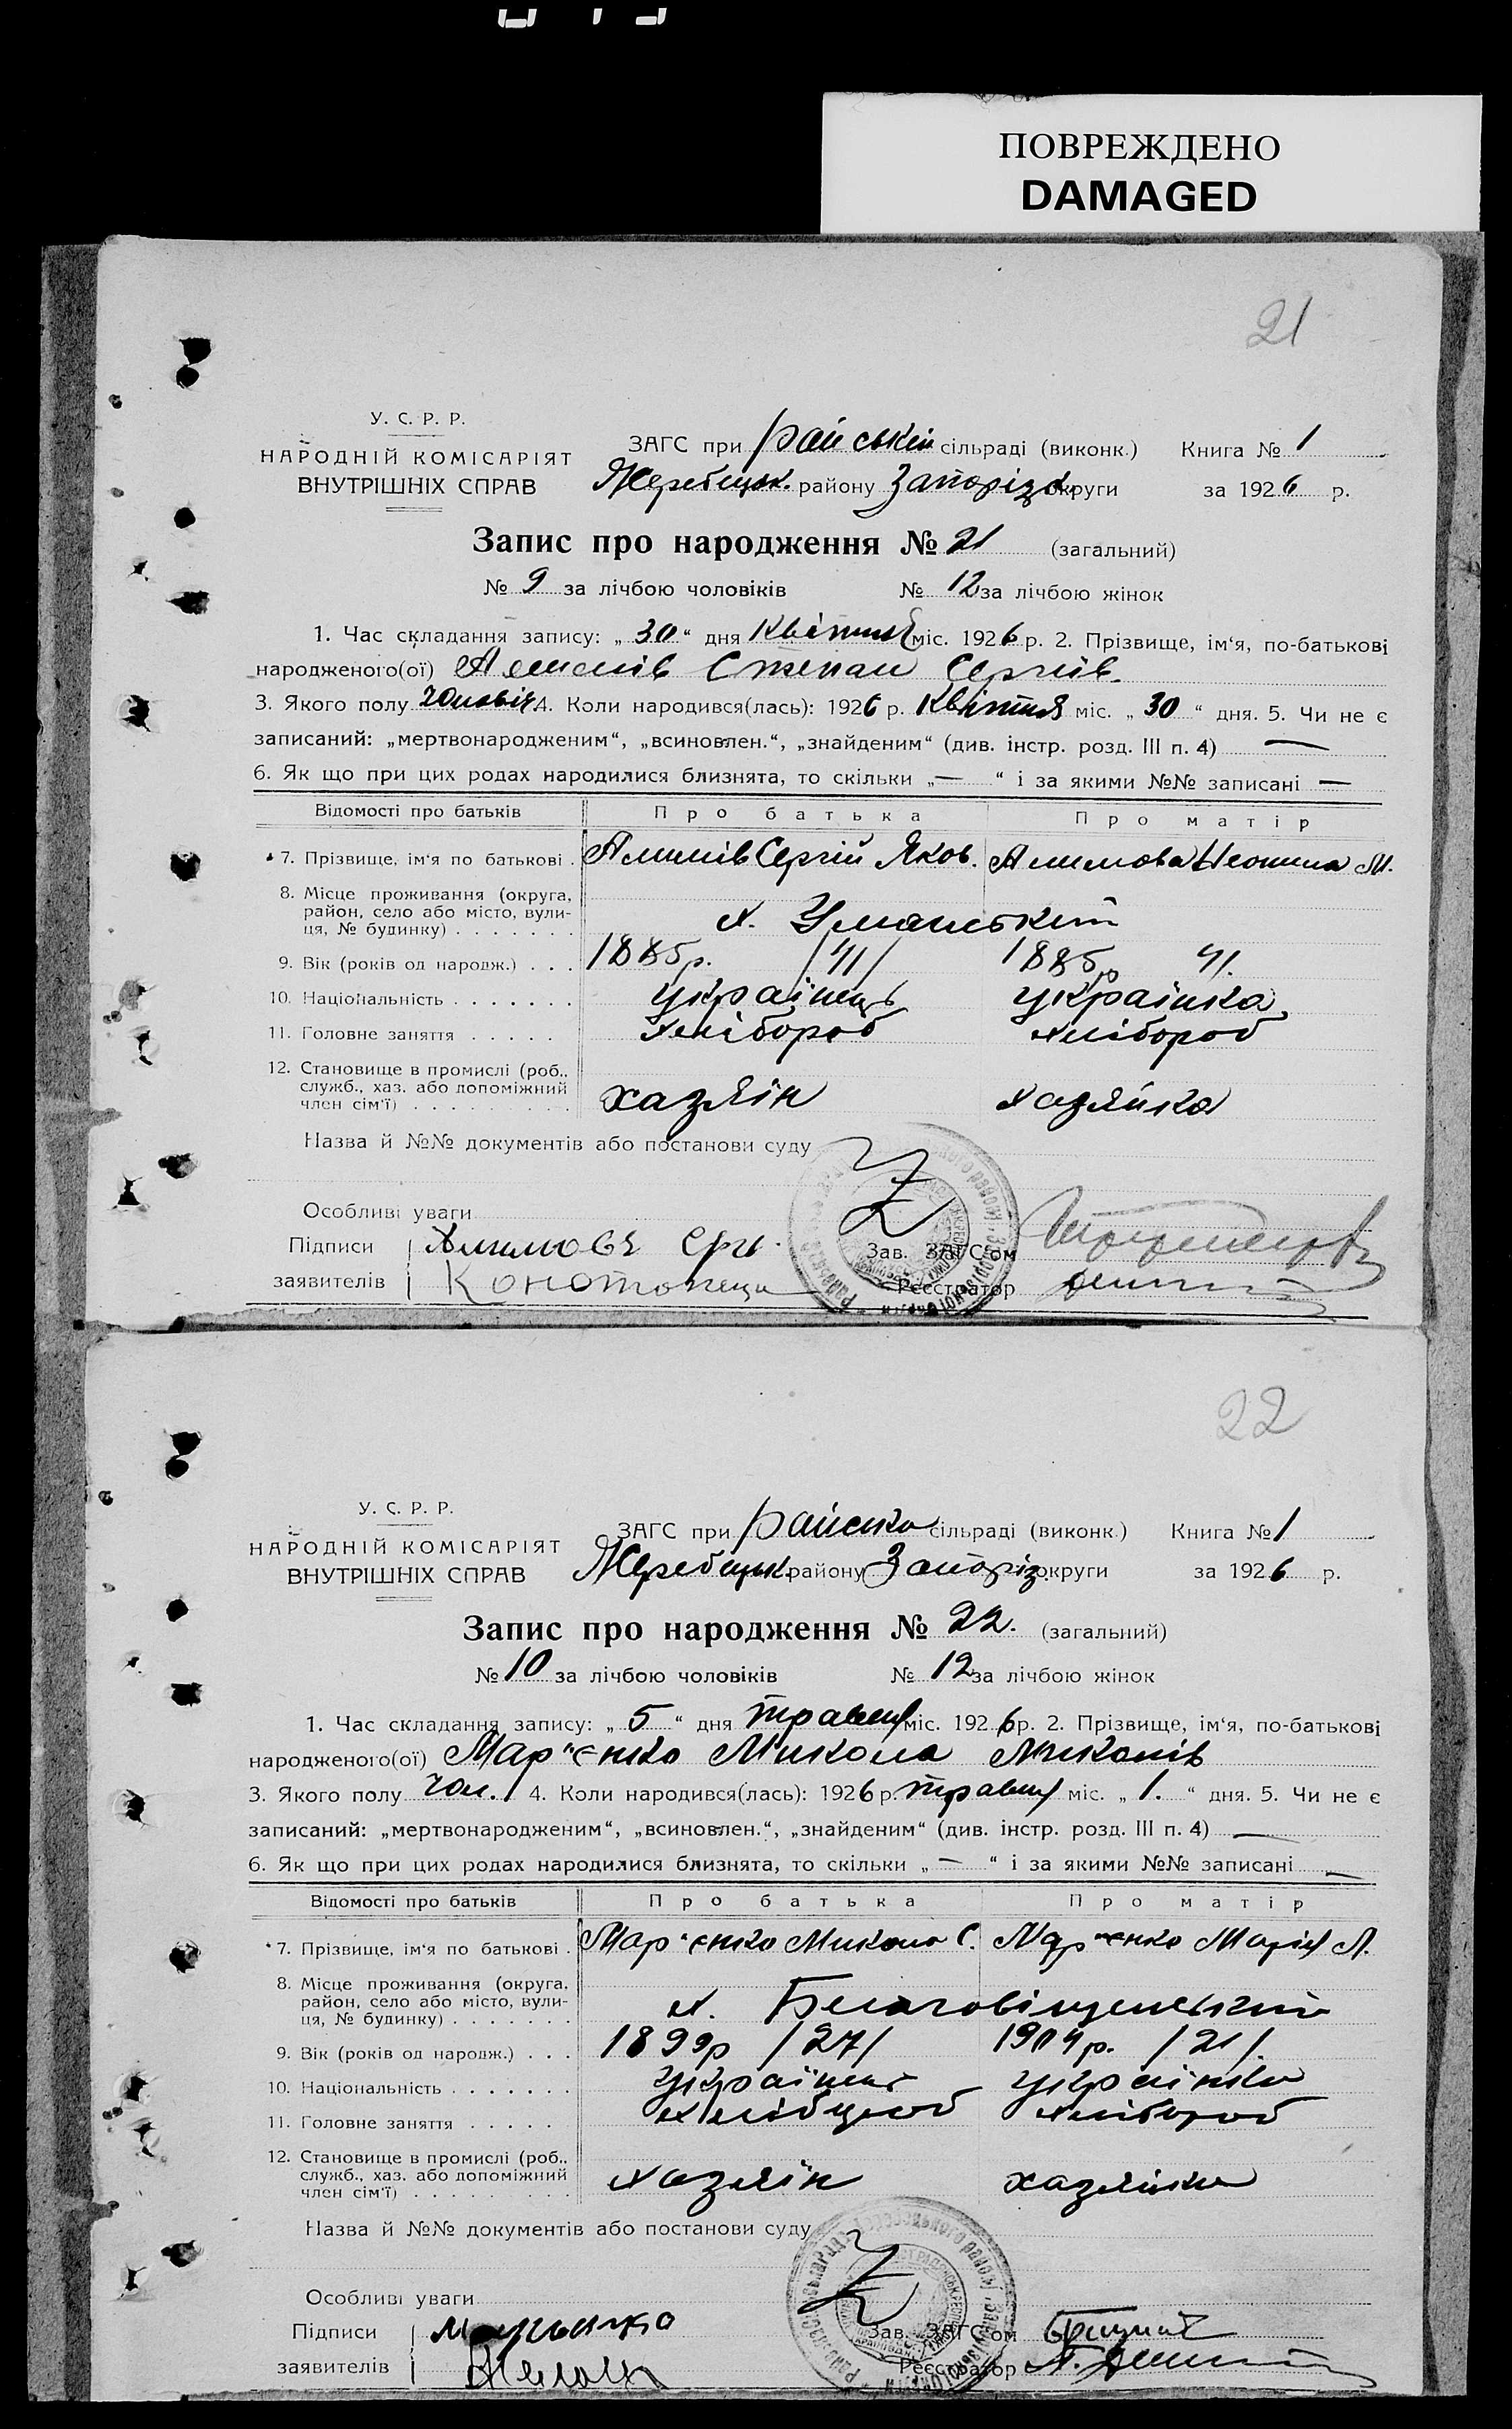 ПОВРЕЖДЕНО
DAMAGED
21
У. С. Р. Р.
НАРОДНІЙ КОМІСАРІЯТ
ВНУТРІШНІХ СПРАВ
ЗАГС при Райській сільраді (виконк.) Книга № 1
Жеребецьк. району Запоріз. округи за 1926 р.
Запис про народження № 21 (загальний)
№ 9 за лічбою чоловіків № 12 за лічбою жінок
1. Час складання запису: „ 30 “ дня Квітня міс. 1926 р. 2. Прізвище, ім‘я, по-батькові
народженого(ої) Алимів Степан Сергіїв.
3. Якого полу чоловіч. 4. Коли народився(лась): 1926 р. Квітня міс. „ 30 “ дня. 5. Чи не є
записаний: „мертвонародженим“, „всиновлен.“, „знайденим“ (див. інстр. розд. III п. 4) —
6. Як що при цих родах народилися близнята, то скільки „ — “ і за якими №№ записані —
Відомості про батьків Про батька Про матір
7. Прізвище, ім‘я по батькові . Алимів Сергій Яков. Алимова М.
8. Місце проживання (округа, район, село або місто, вули-ця, № будинку) . . . . . . . х. Уманський
9. Вік (років од народж.) . . . 1885р. /41/ 1885р 41.
10. Національність . . . . . . . українець українка
11. Головне заняття . . . . . хлібороб хлібороб
12. Становище в промислі (роб., служб., хаз. або допоміжний член сім‘ї) . . . . . . . . . хазяїн хазяйка
Назва й №№ документів або постанови суду
Особливі уваги
Підписи Алимовъ
заявителів Конотопець
Зав. ЗАГС‘ом
Реєстратор
22
У. С. Р. Р.
НАРОДНІЙ КОМІСАРІЯТ
ВНУТРІШНІХ СПРАВ
ЗАГС при Райськ сільраді (виконк.) Книга № 1
Жеребецьк. району Запоріз. округи за 1926 р.
Запис про народження № 22. (загальний)
№ 10 за лічбою чоловіків № 12 за лічбою жінок
1. Час складання запису: „ 5 “ дня травня міс. 1926 р. 2. Прізвище, ім‘я, по-батькові
народженого(ої) Мар"єнко Микола Миколів
3. Якого полу чол. 4. Коли народився(лась): 1926 р. травня міс. „ 1. “ дня. 5. Чи не є
записаний: „мертвонародженим“, „всиновлен.“, „знайденим“ (див. інстр. розд. III п. 4) —
6. Як що при цих родах народилися близнята, то скільки „ — “ і за якими №№ записані —
Відомості про батьків Про батька Про матір
7. Прізвище, ім‘я по батькові . Мар"єнко Микола С. Мар"єнко Марія Л.
8. Місце проживання (округа, район, село або місто, вули-ця, № будинку) . . . . . . . х. Благовіщенський
9. Вік (років од народж.) . . . 1899р /27/ 1904р. /21/.
10. Національність . . . . . . . українець українка
11. Головне заняття . . . . . хлібороб хлібороб
12. Становище в промислі (роб., служб., хаз. або допоміжний член сім‘ї) . . . . . . . . . хазяїн хазяйка
Назва й №№ документів або постанови суду
Особливі уваги
Підписи
заявителів
Зав. ЗАГС‘ом
Реєстратор